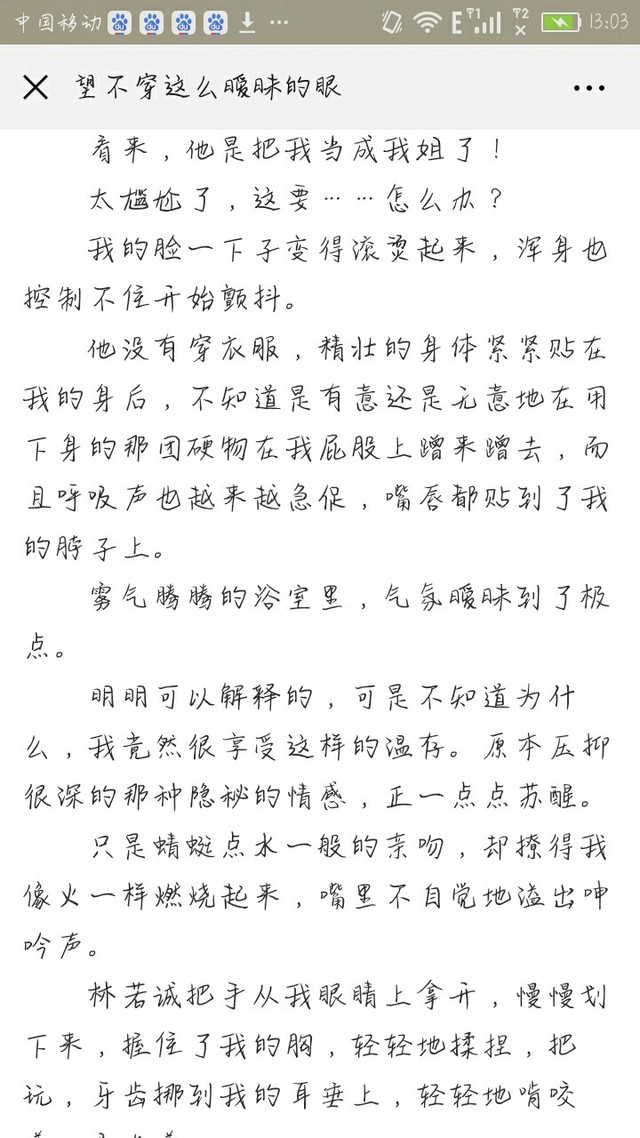 中国移动 E T1 T2 13:03
望不穿这么暧昧的眼
看来，他是把我当成我姐了！
太尴尬了，这要……怎么办？
我的脸一下子变得滚烫起来，浑身也
控制不住开始颤抖。
他没有穿衣服，精壮的身体紧紧贴在
我的身后，不知道是有意还是无意地在用
下身的那团硬物在我屁股上蹭来蹭去，而
且呼吸声也越来越急促，嘴唇都贴到了我
的脖子上。
雾气腾腾的浴室里，气氛暧昧到了极
点。
明明可以解释的，可是不知道为什
么，我竟然很享受这样的温存。原本压抑
很深的那种隐秘的情感，正一点点苏醒。
只是蜻蜓点水一般的亲吻，却撩得我
像火一样燃烧起来，嘴里不自觉地溢出呻
吟声。
林若诚把手从我眼睛上拿开，慢慢划
下来，握住了我的胸，轻轻地揉捏，把
玩，牙齿挪到我的耳垂上，轻轻地啃咬